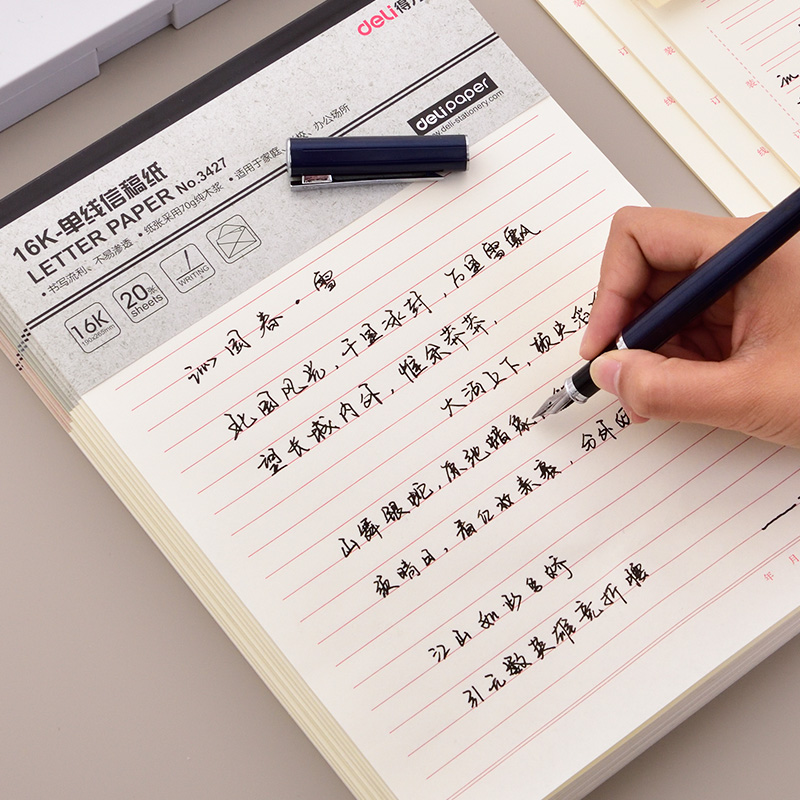 deli得力
deli paper
www.deli-stationery.com
16K-单线信稿纸
LETTER PAPER No.3427
•书写流利、不易渗透 •纸张采用70g纯木浆 •适用于家庭、校、办公场所
16K
190x265mm
20张
sheets
WRITING
沁园春·雪
北国风光,千里冰封,万里雪飘
望长城内外,惟余莽莽.
大河上下,顿失滔
山舞眼蛇,原驰蜡象
须晴日,看红放素裹,分外
江山如此多娇
引无数英雄竞折腰
年 月
装
订
线
装
订
线